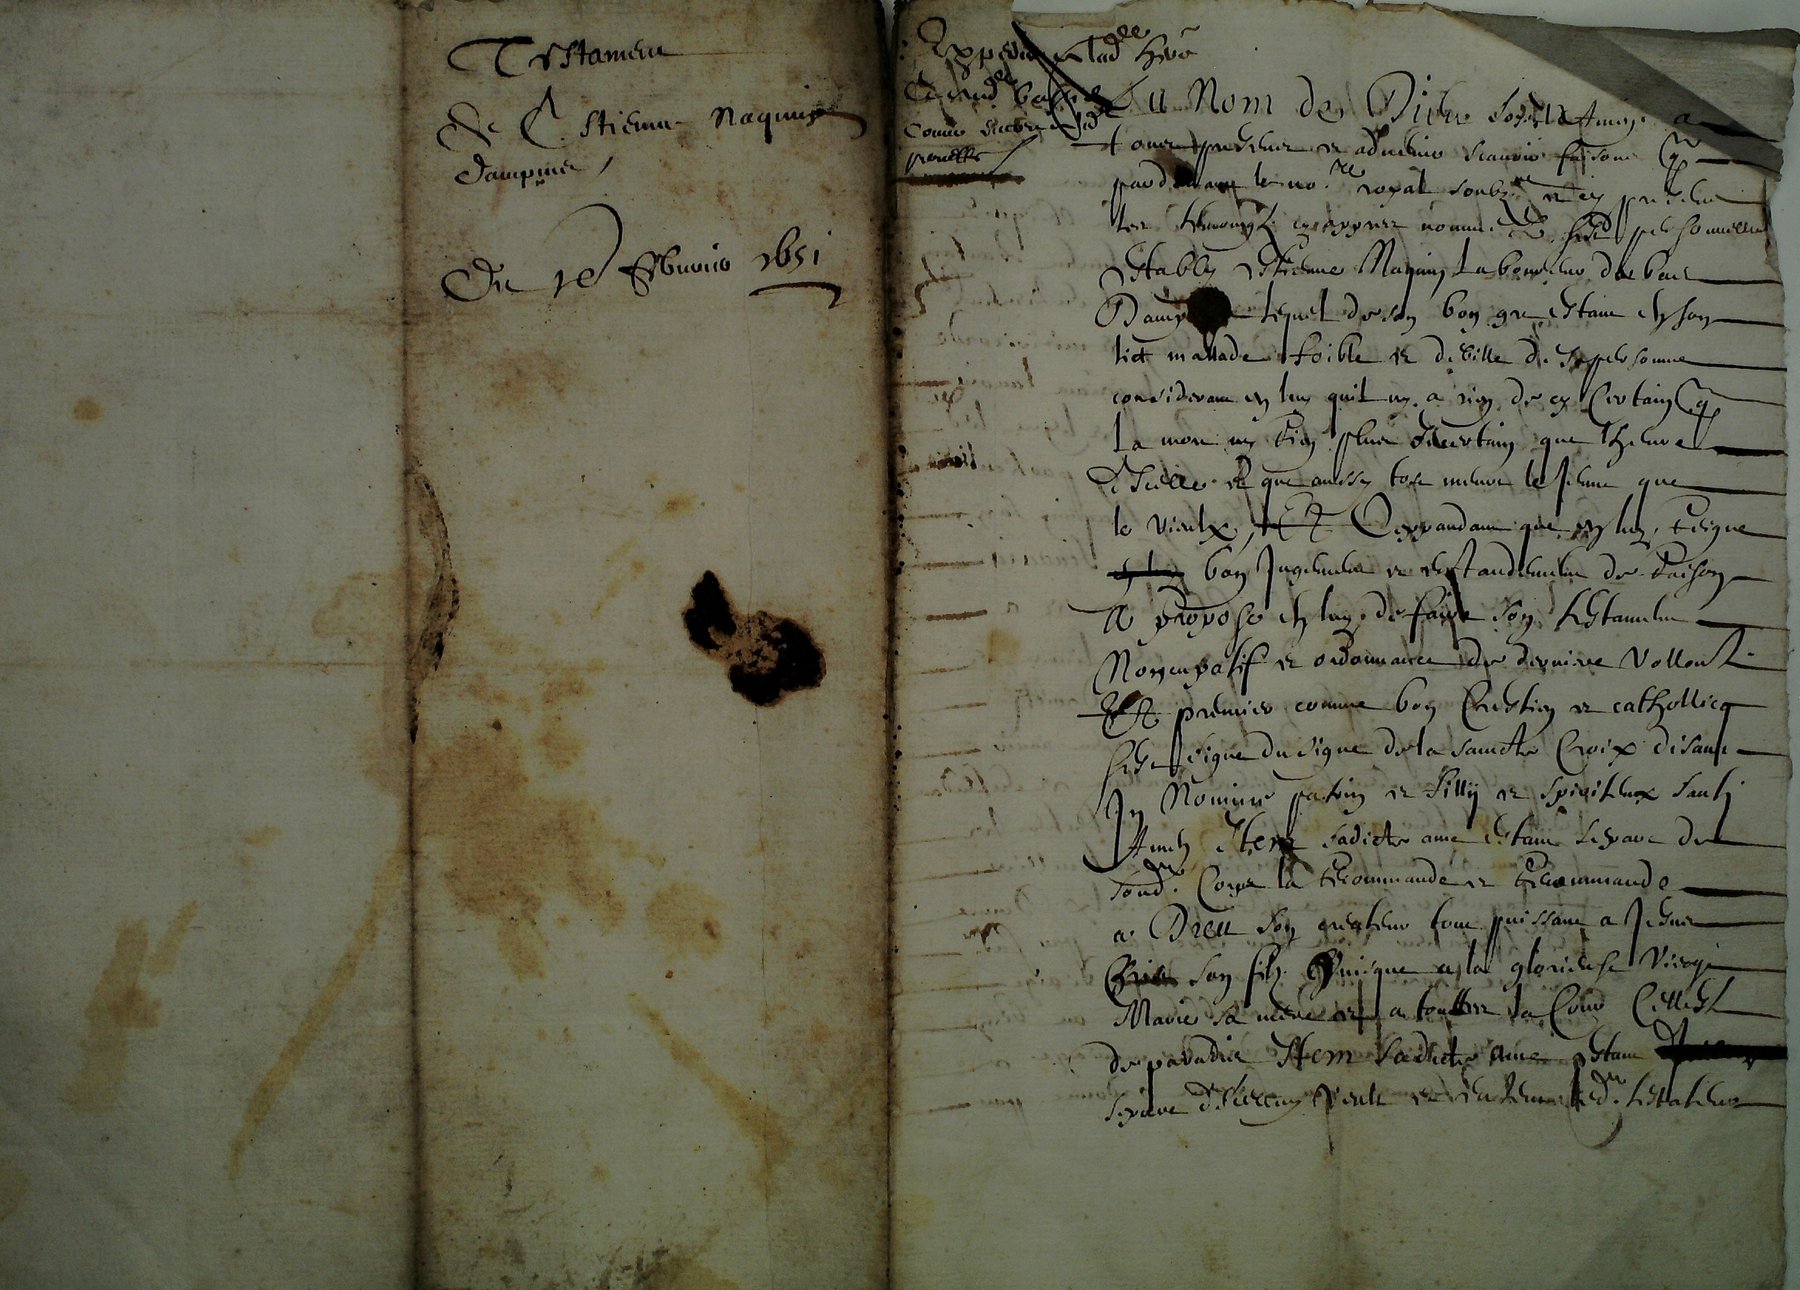 Testament
de Estienne Naquin
dampine
Du 18 febvrier 1651
Expedie
comme
Au Nom de Dieu soit Amen a
tous presens et advenir scavoir faisons q
pardevant le no.re royal soubz.ne et en presence
les tesmoingz cy appres nommes fust personnellem
estably Estienne Naquin laboureur de bas
Damp lequel de son bon gre estant en son
lict mallade foible et debille de sa personne
considerant en luy quil ny a rien de cy certain q
la mort ny rien plus incertain que lheure
dicelle et que aussy tost meurt le jeune que
le vieulx, Et Ceppandant que en luy, reigne
bon Jugement et entandement de raison
A propose en luy de faire son testament
Noncupatif et ordonnance de derniere vollonte
Et premier comme bon Crestien et catholicq
sest signe du signe de la saincte Croix disant
In Nomine patris et fillij et spiritus santj
Amen Item sadicte ame estant separe de
sond. Corps la recommande et recommande
a Dieu son createur tout puissant a Jesus
Crist son filz Unique a la glorieuse vierge
Marie sa mere et a toutte la Cour Celleste
de paradis Item sadicte ame estant
separe dicelluy veult et entend led. testateur